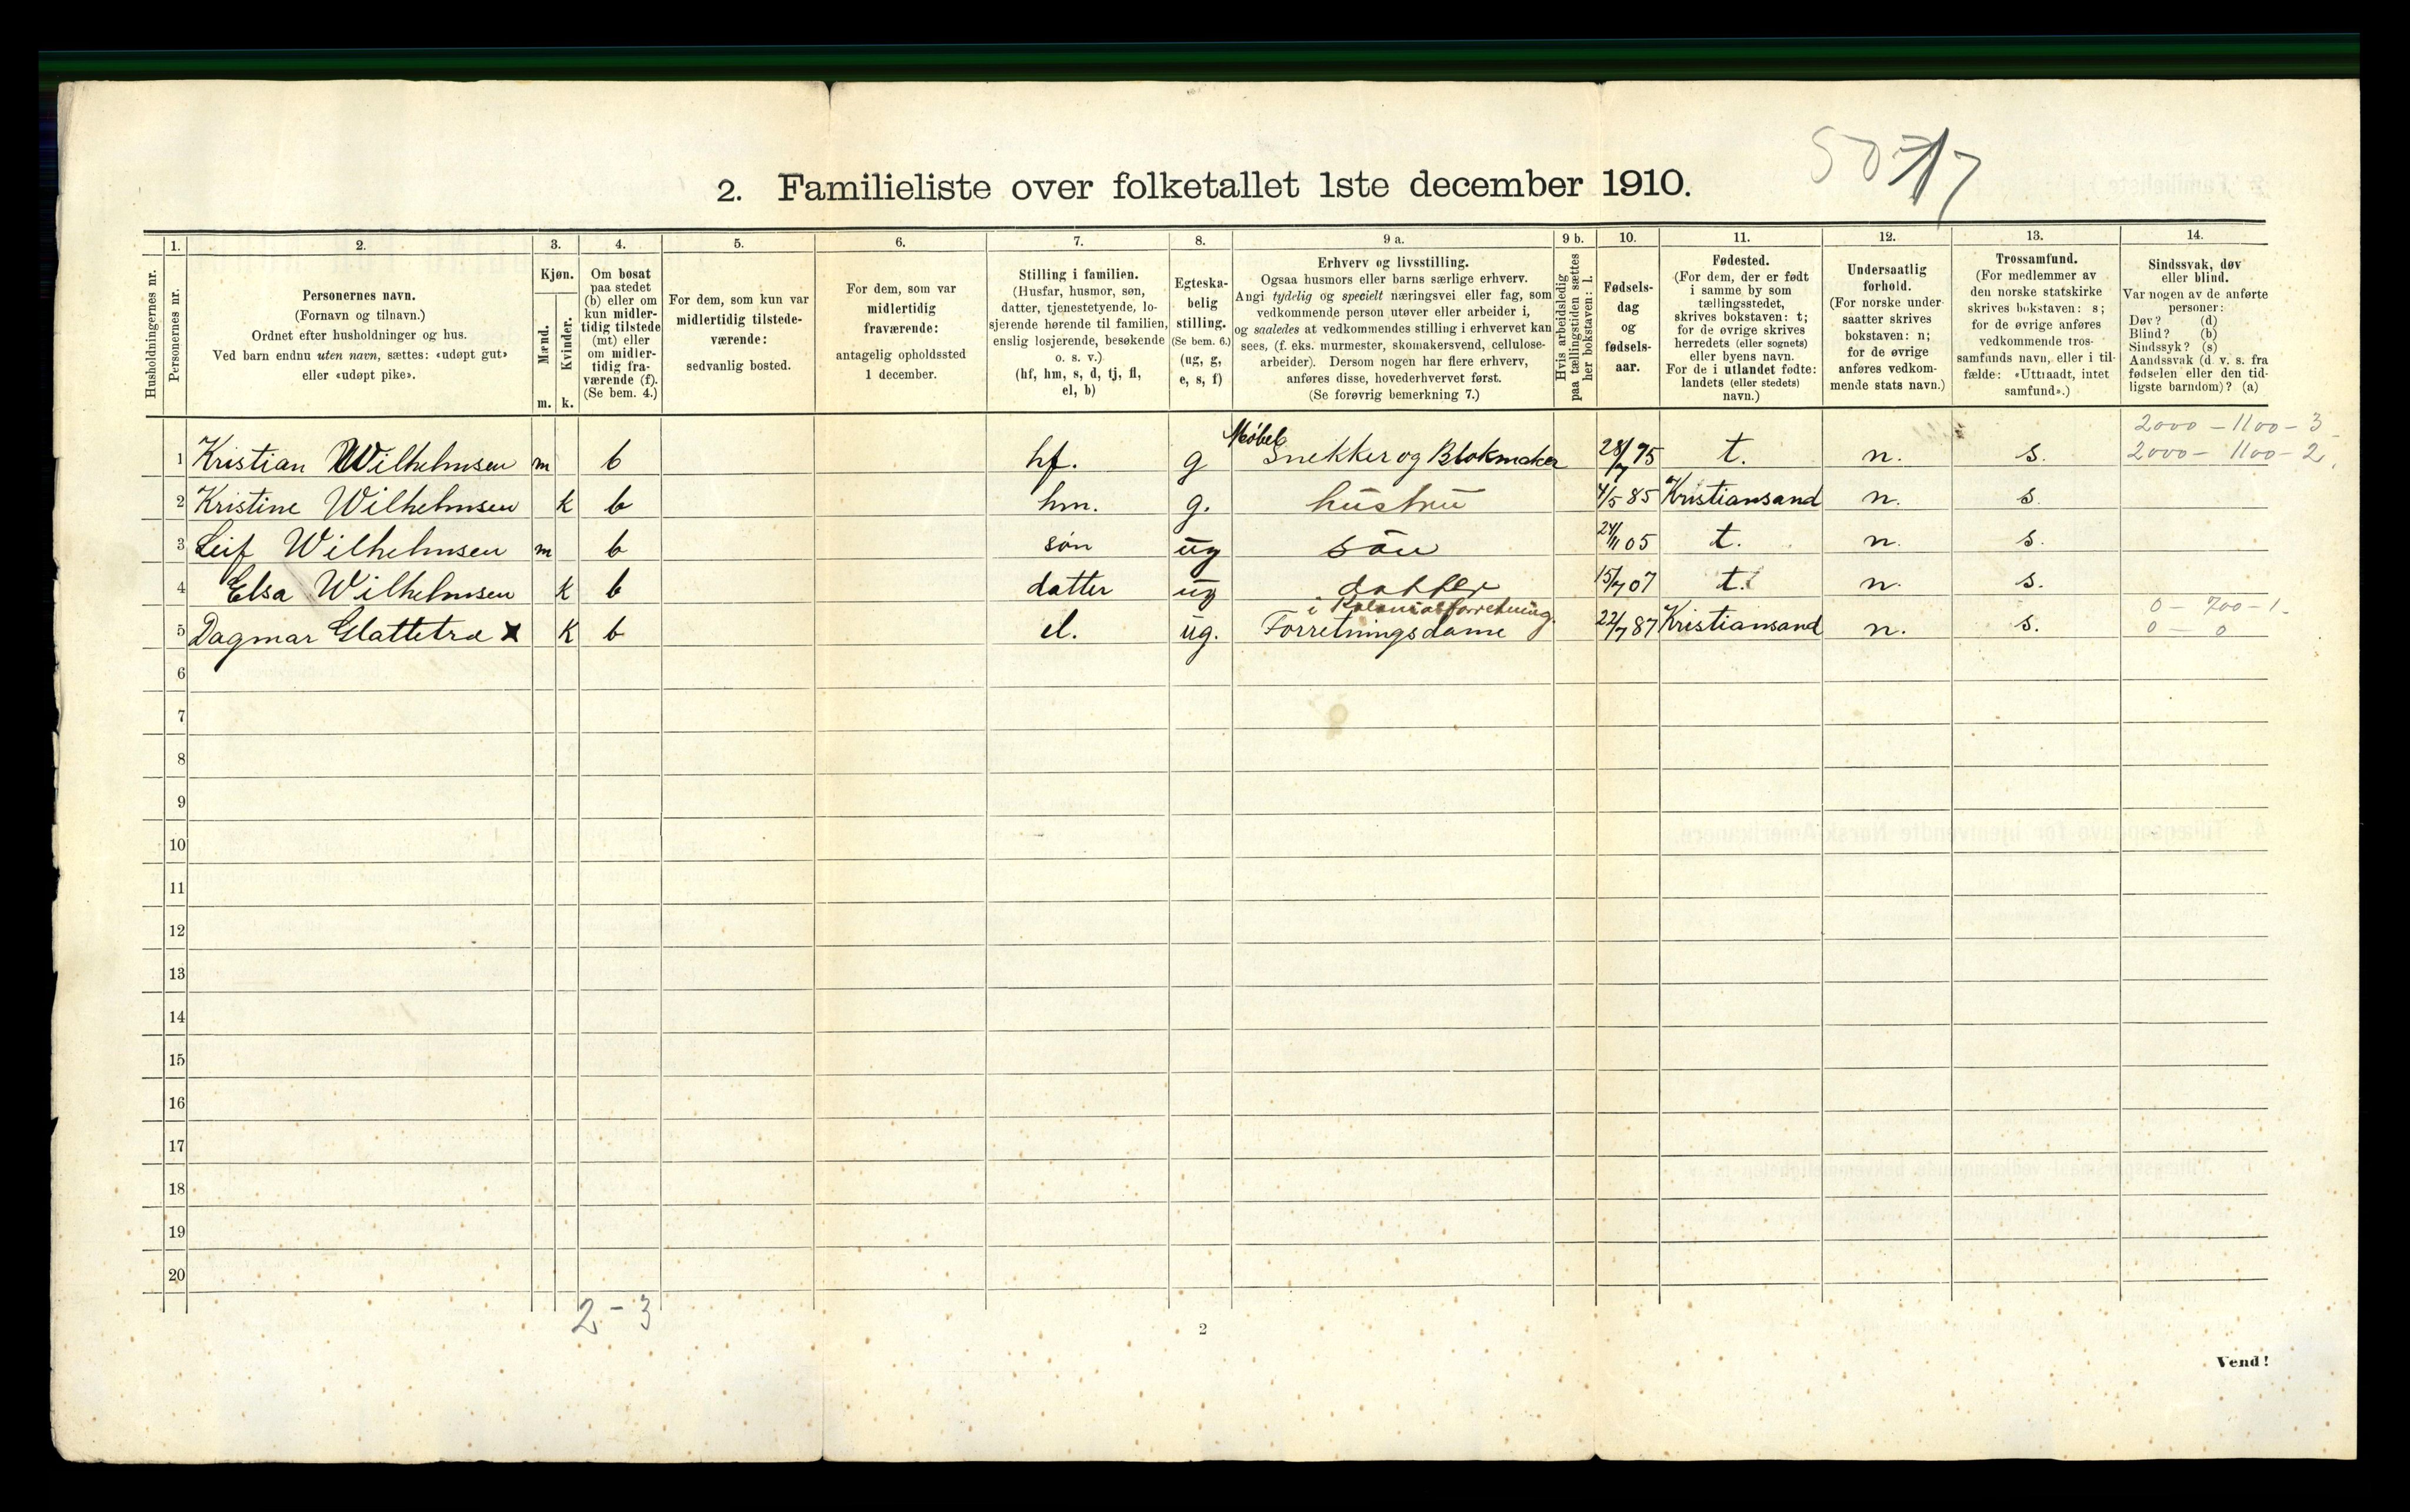 2. Familieliste over folketallet 1ste december 1910.
Husholdningernes nr.
1.
Personernes nr.
2.
Personernes navn.
(Fornavn og tilnavn.)
Ordnet efter husholdninger og hus.
Ved barn endnu uten navn, sættes: «udøpt gut»
eller «udøpt pike».
3.
Kjøn.
Mænd.
m.
Kvinder.
k.
4.
Om bosat
paa stedet
(b) eller om
kun midler-
tidig tilstede
(mt) eller
om midler-
tidig fra-
værende (f).
(Se bem. 4.)
5.
For dem, som kun var
midlertidig tilstede-
værende:
sedvanlig bosted.
6.
For dem, som var
midlertidig
fraværende:
antagelig opholdssted
1 december.
7.
Stilling i familien.
(Husfar, husmor, søn,
datter, tjenestetyende, lo-
sjerende hørende til familien,
enslig losjerende, besøkende
o. s. v.)
(hf, hm, s, d, tj, fl,
el, b)
8.
Egteska-
belig
stilling.
(Se bem. 6.)
(ug, g,
e, s, f)
9 a.
Erhverv og livsstilling.
Ogsaa husmors eller barns særlige erhverv.
Angi tydelig og specielt næringsvei eller fag, som
vedkommende person utøver eller arbeider i,
og saaledes at vedkommendes stilling i erhvervet kan
sees, (f. eks. murmester, skomakersvend, cellulose-
arbeider). Dersom nogen har flere erhverv,
anføres disse, hovederhvervet først.
(Se forøvrig bemerkning 7.)
9 b.
Hvis arbeidsledig
paa tællingstiden sættes
her bokstaven: l.
10.
Fødsels-
dag
og
fødsels-
aar.
11.
Fødested.
(For dem, der er født
i samme by som
tællingsstedet,
skrives bokstaven: t;
for de øvrige skrives
herredets (eller sognets)
eller byens navn.
For de i utlandet fødte:
landets (eller stedets)
navn.)
12.
Undersaatlig
forhold.
(For norske under-
saatter skrives
bokstaven: n;
for de øvrige
anføres vedkom-
mende stats navn.)
13.
Trossamfund.
(For medlemmer av
den norske statskirke
skrives bokstaven: s;
for de øvrige anføres
vedkommende tros-
samfunds navn, eller i til-
fælde: «Uttraadt, intet
samfund».)
14.
Sindssvak, døv
eller blind.
Var nogen av de anførte
personer:
Døv? (d)
Blind? (b)
Sindssyk? (s)
Aandssvak (d. v. s. fra
fødselen eller den tid-
ligste barndom)? (a)
2000 - 1100 - 3
Møbel
1 Kristian Wilhelmsen m b hf. g Snekker og Blokmaker 28/7 75 t. n. s. 2000 - 1100 - 2
2 Kristine Wilhelmsen k b hm. g. hustru 4/5 85 Kristiansand n. s.
3 Leif Wilhelmsen m b søn ug søn 24/11 05 t. n. s.
4 Elsa Wilhelmsen k b datter ug datter 15/7 07 t. n. s.
i Kolonialforretning. 0 - 700 - 1.
5 Dagmar Glattetre x k b el. ug. Forretningsdame 22/7 87 Kristiansand n. s. 0 - 0
6
7
8
9
10
11
12
13
14
15
16
17
18
19
20
2 - 3
2
Vend!